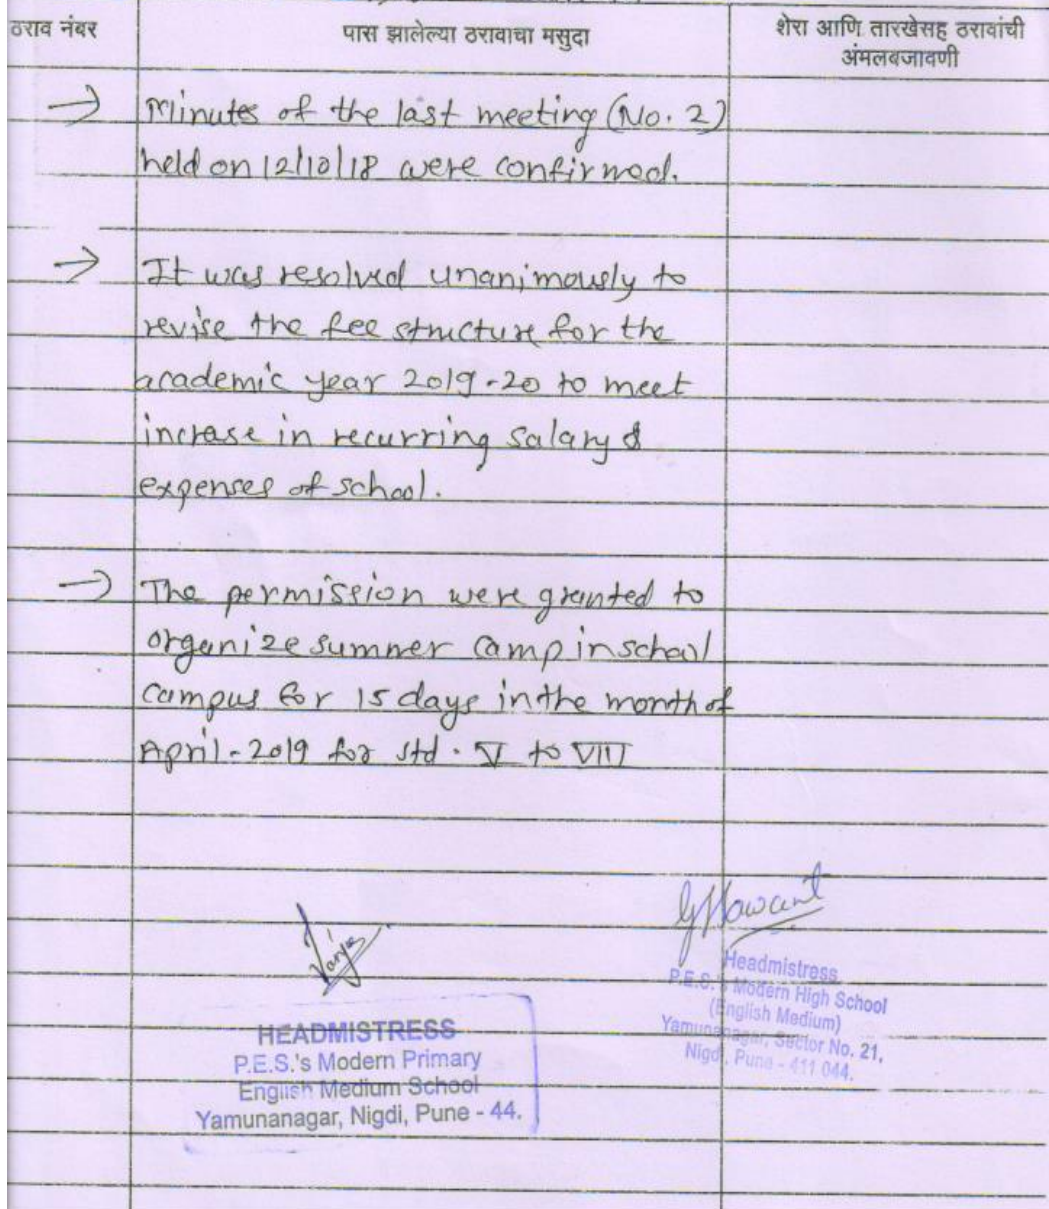 ठराव नंबर
पास झालेल्या ठरावाचा मसुदा
शेरा आणि तारखेसह ठरावांची
अंमलबजावणी
→ Minutes of the last meeting (No. 2)
held on 12/10/18 were confirmed.
→ It was resolved unanimously to
revise the fee structure for the
academic year 2019-20 to meet
increase in recurring salary &
expenses of school.
→ The permission were granted to
organize summer camp in school
campus for 15 days in the month of
April-2019 for std. V to VIII
HEADMISTRESS
P.E.S.'s Modern Primary
English Medium School
Yamunanagar, Nigdi, Pune - 44.
Headmistress
P.E.S.'s Modern High School
(English Medium)
Yamunanagar, Sector No. 21,
Nigdi, Pune - 411 044.